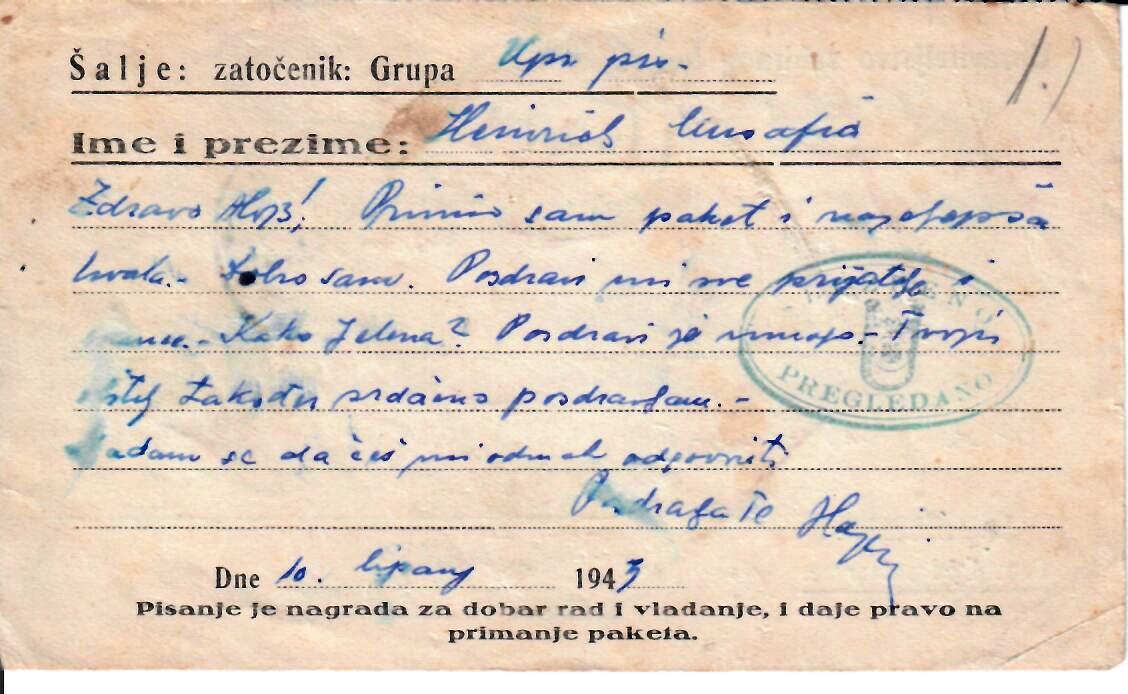 1.)
Šalje: zatočenik: Grupa
Ime i prezime: Heinrich Musafia
Zdravo! Primio sam paket i najljepša
hvala.- Dobro sam. Pozdravi mi sve prijatelje i
Kako Jelena? Pozdravi je mnogo.- Tvoju
također srdačno pozdravljam.-
Nadam se da ćeš mi odmah odgovoriti
te
PREGLEDANO
Dne 10. lipanj 1943
Pisanje je nagrada za dobar rad i vladanje, i daje pravo na
primanje paketa.